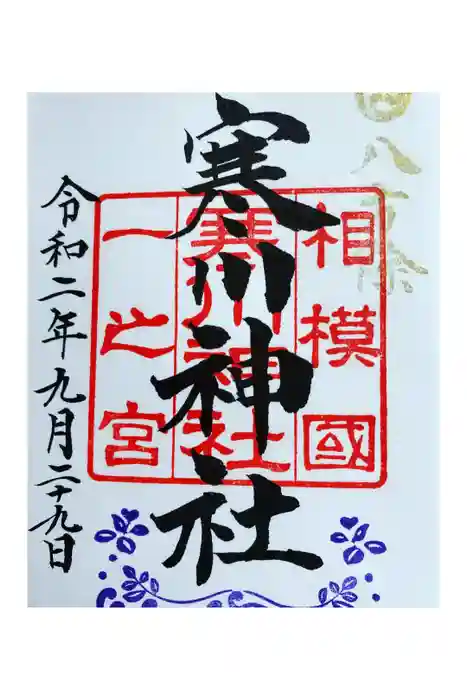 八方除
相模國
寒川神社
一之宮
寒川神社
令和二年九月二十九日